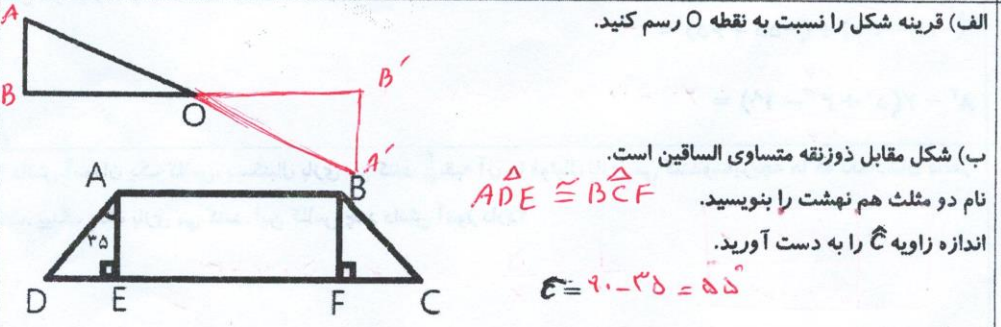 الف) قرینه شکل را نسبت به نقطه O رسم کنید.
A
B
O
B′
A′
ب) شکل مقابل ذوزنقه متساوی الساقین است.
نام دو مثلث هم نهشت را بنویسید.
AD̂E ≅ BĈF
اندازه زاویه Ĉ را به دست آورید.
Ĉ = ۹۰ - ۳۵ = ۵۵°
A
B
۳۵
D
E
F
C